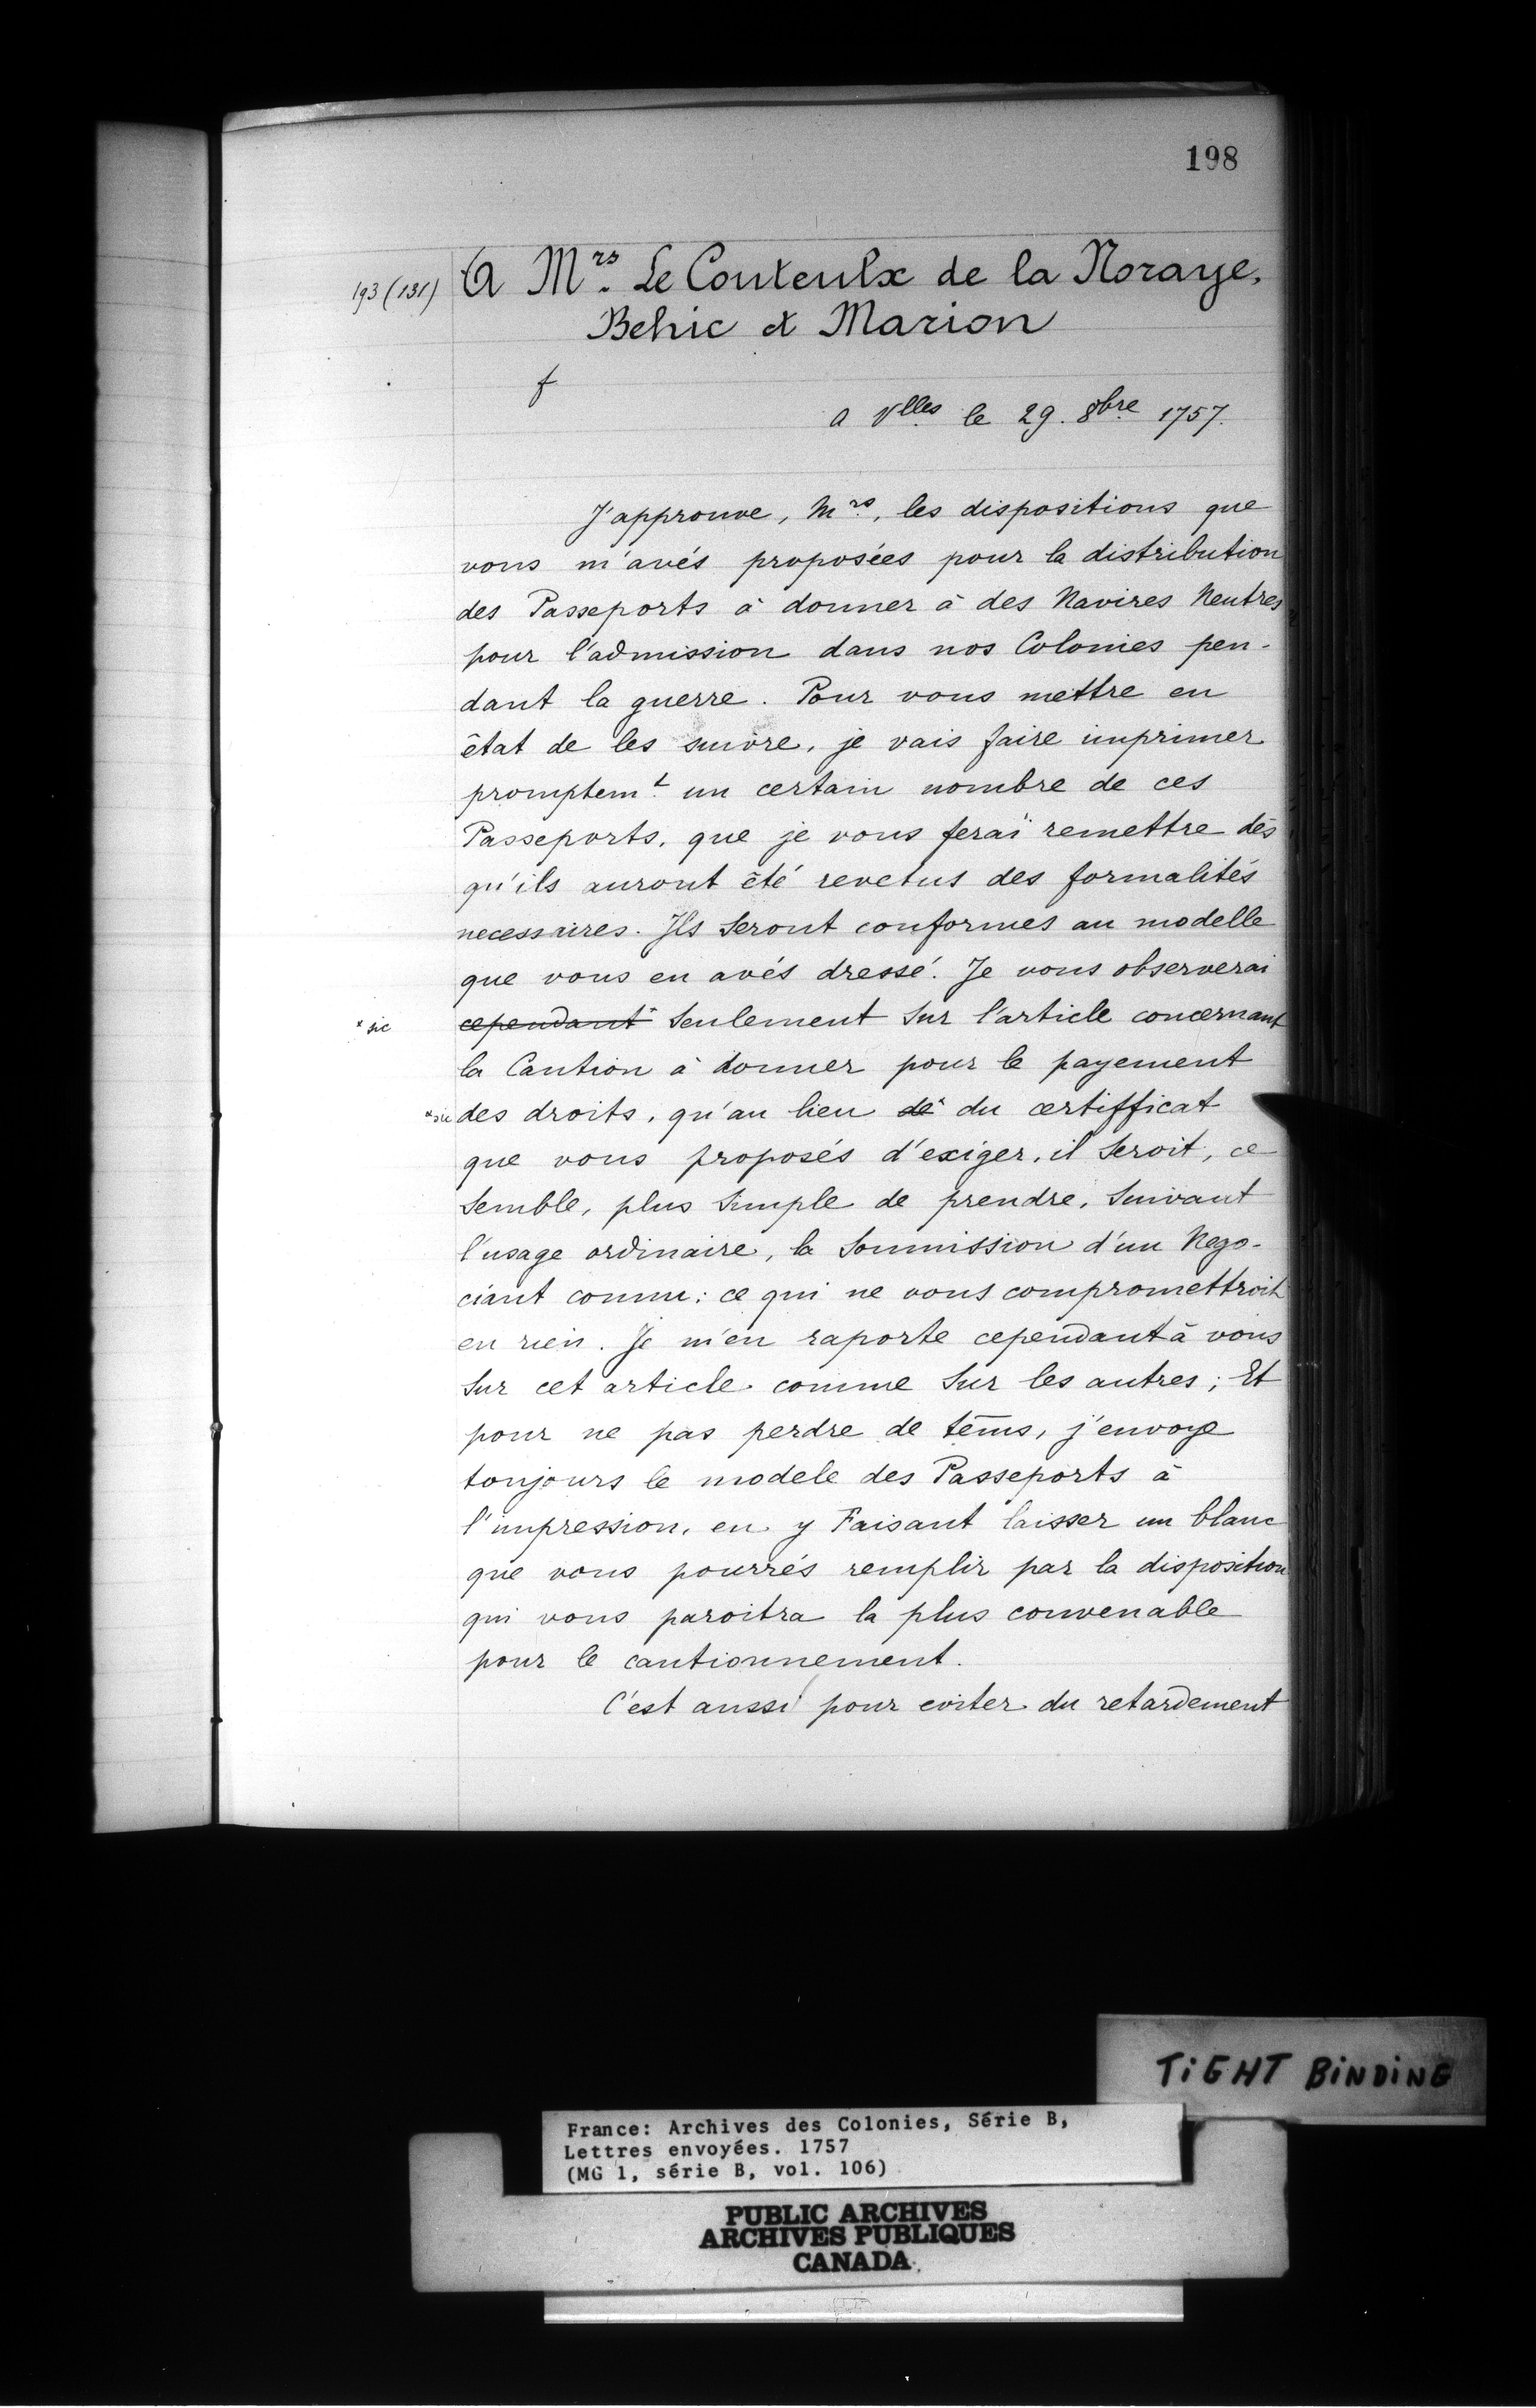 198
193 (131) A Mrs. Le Couteulx de la Noraye,
Behic et Marion
f
a Vlles le 29. 8bre 1757.
J'approuve, Mrs, les dispositions que
vous m'avés proposées pour la distribution
des Passeports à donner à des Navires Neutres
pour l'admission dans nos Colonies pen-
dant la guerre. Pour vous mettre en
état de les suivre, je vais faire imprimer
promptemt. un certain nombre de ces
Passeports, que je vous ferai remettre dès
qu'ils auront été revetus des formalités
necessaires. Ils seront conformes au modelle
que vous en avés dressé. Je vous observerai
* sic cependant* seulement sur l'article concernant
la Caution à donner pour le payement
* sic des droits, qu'au lieu de* du certifficat
que vous proposés d'exiger, il seroit, ce
semble, plus simple de prendre, suivant
l'usage ordinaire, la soumission d'un Nego-
ciant connu: ce qui ne vous compromettroit
en rien. Je m'en raporte cependant à vous
sur cet article comme sur les autres; Et
pour ne pas perdre de tems, j'envoye
toujours le modele des Passeports à
l'impression, en y Faisant laisser un blanc
que vous pourrés remplir par la disposition
qui vous paroitra la plus convenable
pour le cautionnement.
C'est aussi pour eviter du retardement
TiGHT BiNDiNG
France: Archives des Colonies, Série B,
Lettres envoyées. 1757
(MG 1, série B, vol. 106)
PUBLIC ARCHIVES
ARCHIVES PUBLIQUES
CANADA